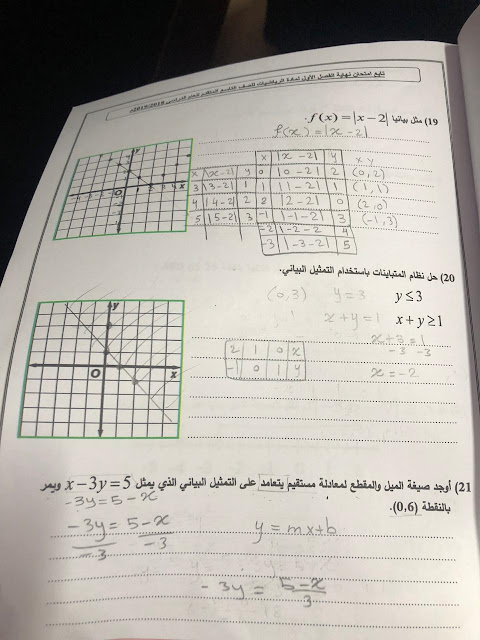 تابع امتحان نهاية الفصل الأول لمادة الرياضيات للصف التاسع المتقدم للعام الدراسي 2018/2019م
19) مثل بيانيا f(x) = |x − 2|.
f(x) = |x − 2|
x |x − 2| y xy
x |x−2| y 0 |0 − 2| 2 (0,2)
3 |3−2| 1 1 |1 − 2| 1 (1,1)
4 |4−2| 2 2 |2 − 2| 0 (2,0)
5 |5−2| 3 −1 |−1−2| 3 (−1,3)
−2 |−2−2 4
−3 |−3−2| 5
y
x
O
20) حل نظام المتباينات باستخدام التمثيل البياني.
(0,3) y = 3 y ≤ 3
x + y = 1 x + y ≥ 1
x + 3 = 1
−3 −3
2 1 0 x
−1 0 1 y
x = −2
y
x
O
21) أوجد صيغة الميل والمقطع لمعادلة مستقيم يتعامد على التمثيل البياني الذي يمثل x − 3y = 5 ويمر
بالنقطة (0,6).
−3y = 5 − x
−3y = 5 − x
−3 −3
y = mx + b
− 3y = 5 − x
3